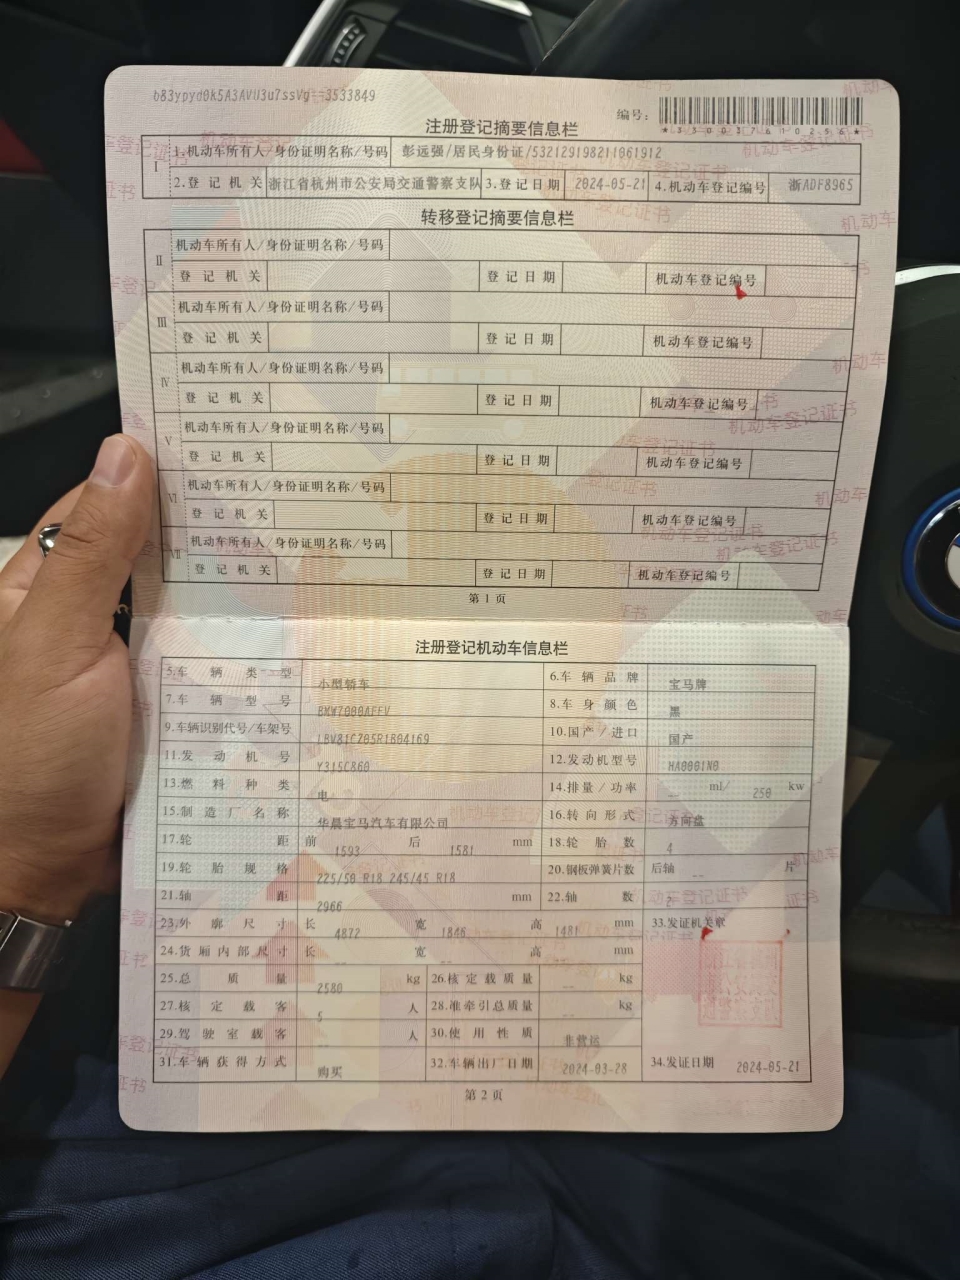 b83ypyd0k5A3AVU3u7ssVg==3533849
编号：
*330037610256*
注册登记摘要信息栏
Ⅰ 1.机动车所有人/身份证明名称/号码 彭远强/居民身份证/532129198211061912
2.登记机关 浙江省杭州市公安局交通警察支队 3.登记日期 2024-05-21 4.机动车登记编号 浙ADF8965
转移登记摘要信息栏
Ⅱ 机动车所有人/身份证明名称/号码
登记机关 登记日期 机动车登记编号
Ⅲ 机动车所有人/身份证明名称/号码
登记机关 登记日期 机动车登记编号
Ⅳ 机动车所有人/身份证明名称/号码
登记机关 登记日期 机动车登记编号
Ⅴ 机动车所有人/身份证明名称/号码
登记机关 登记日期 机动车登记编号
Ⅵ 机动车所有人/身份证明名称/号码
登记机关 登记日期 机动车登记编号
Ⅶ 机动车所有人/身份证明名称/号码
登记机关 登记日期 机动车登记编号
第1页
注册登记机动车信息栏
5.车辆类型 小型轿车 6.车辆品牌 宝马牌
7.车辆型号 BMW7000AFEV 8.车身颜色 黑
9.车辆识别代号/车架号 LBV81CZ05R1B04169 10.国产/进口 国产
11.发动机号 Y315C860 12.发动机型号 HA0001N0
13.燃料种类 电 14.排量/功率 -- ml/ 250 kw
15.制造厂名称 华晨宝马汽车有限公司 16.转向形式 方向盘
17.轮距 前 1593 后 1581 mm 18.轮胎数 4
19.轮胎规格 225/50 R18 245/45 R18 20.钢板弹簧片数 后轴 -- 片
21.轴距 2966 mm 22.轴数 2
23.外廓尺寸 长 4872 宽 1846 高 1481 mm 33.发证机关章
24.货厢内部尺寸 长 -- 宽 -- 高 -- mm
25.总质量 2580 kg 26.核定载质量 -- kg
27.核定载客 5 人 28.准牵引总质量 -- kg
29.驾驶室载客 -- 人 30.使用性质 非营运
31.车辆获得方式 购买 32.车辆出厂日期 2024-03-28 34.发证日期 2024-05-21
第2页